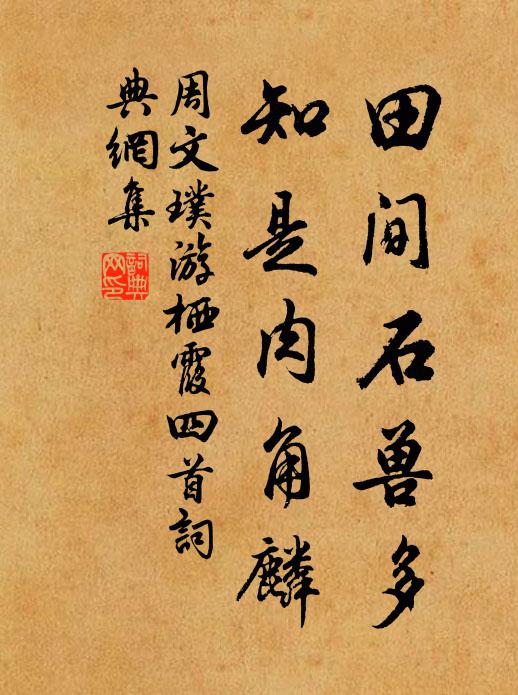 田间石兽多
知是肉角麟
周文璞游栖霞四首詞
典網集
詞典網印